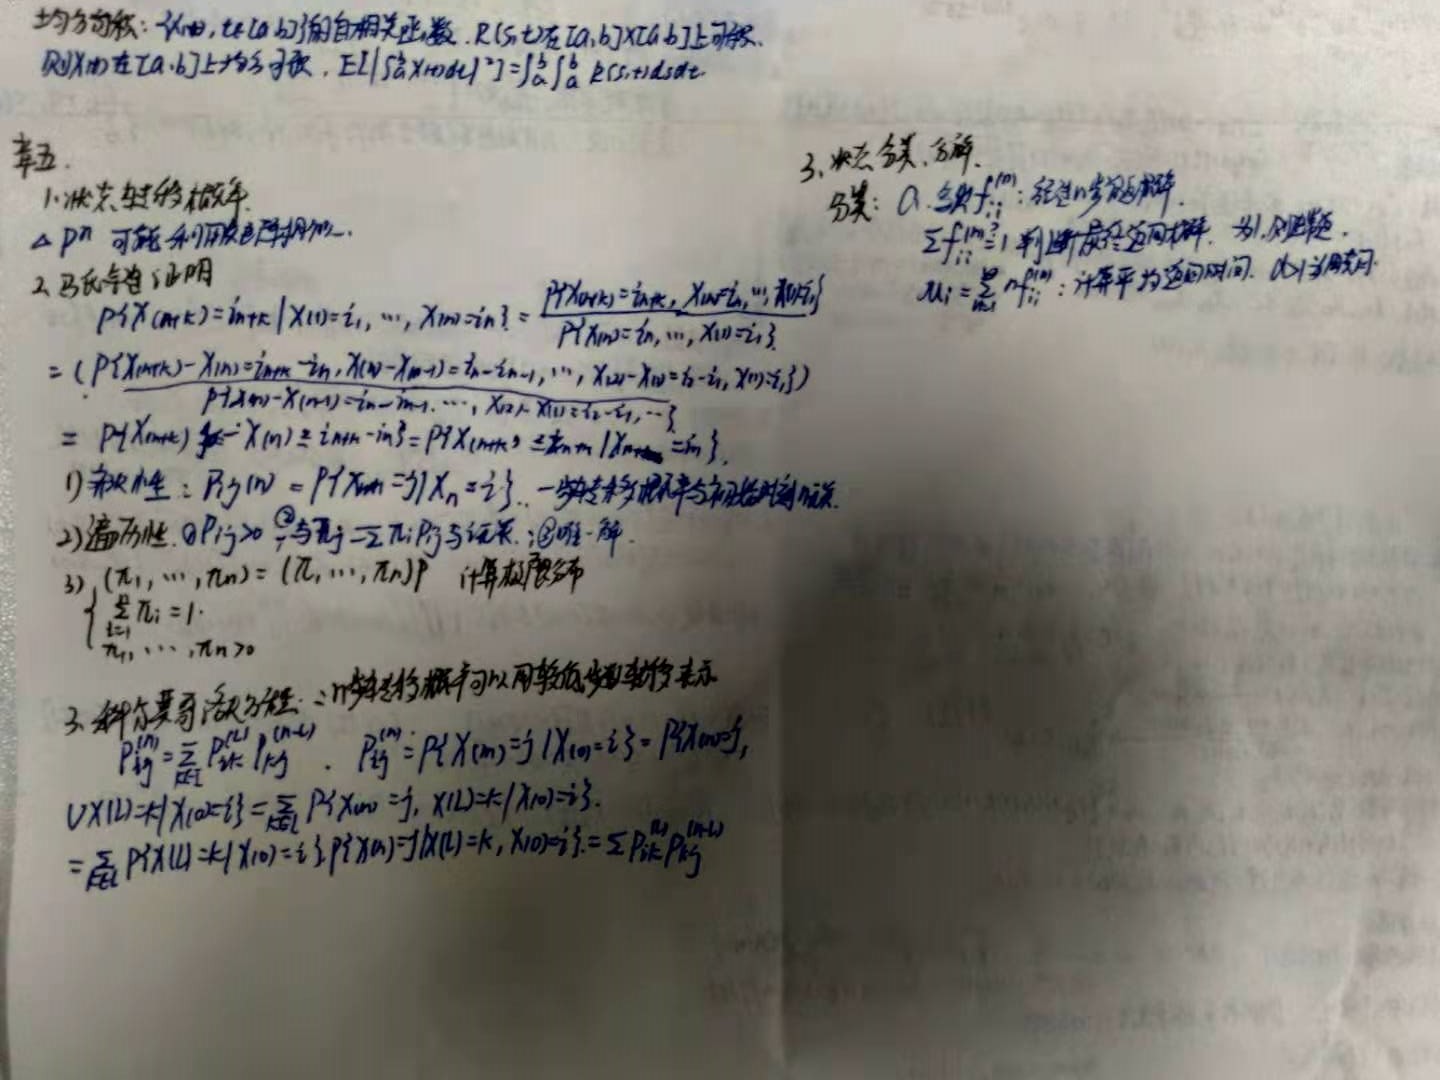 均方可积：{X(t), t∈[a,b]}的自相关函数. R(s,t)在[a,b]×[a,b]上可积.
则X(t)在[a,b]上均方可积, E[|∫ₐᵇX(t)dt|²]=∫ₐᵇ∫ₐᵇ R(s,t)dsdt.
章五.
1. 状态转移概率.
△ Pⁿ 可能利用
2. 马氏链证明
P{X(n+k)=iₙ₊ₖ | X(1)=i₁, …, X(n)=iₙ} = P{X(n+k)=iₙ₊ₖ, X(n)=iₙ, …, X(1)=i₁} / P{X(n)=iₙ, …, X(1)=i₁}
= (P{X(n+k)-X(n)=iₙ₊ₖ-iₙ, X(n)-X(n-1)=iₙ-iₙ₋₁, …, X(2)-X(1)=i₂-i₁, X(1)=i₁})
P{X(n)-X(n-1)=iₙ-iₙ₋₁, …, X(2)-X(1)=i₂-i₁, …}
= P{X(n+k)-X(n)=iₙ₊ₖ-iₙ} = P{X(n+k)=iₙ₊ₖ | Xₙ=iₙ}.
1) 齐次性：Pij(n) = P{Xₙ₊₁=j | Xₙ=i}. 一步转移概率与初始时刻n无关.
2) 遍历性. ①Pij>0 ②πj=Σπi Pij与i无关；③唯一解.
3) (π₁, …, πn) = (π₁, …, πn)P 计算极限分布
Σ πi = 1.
π₁, …, πn>0
3. 科尔莫哥洛夫方程：n步转移概率可以用较低步数转移表示
Pij⁽ⁿ⁾ = Σ Pik⁽ᴸ⁾ Pkj⁽ⁿ⁻ᴸ⁾. Pij⁽ⁿ⁾ = P{X(n)=j | X(0)=i} = P{X(n)=j,
∪X(L)=k | X(0)=i} = Σ P{X(n)=j, X(L)=k | X(0)=i}.
= Σ P{X(L)=k | X(0)=i} P{X(n)=j | X(L)=k, X(0)=i} = Σ Pik⁽ᴸ⁾ Pkj⁽ⁿ⁻ᴸ⁾
3. 状态分类、分解.
分类：a. fii⁽ⁿ⁾：经过n步返回概率.
Σfii⁽ⁿ⁾=1 判断最终返回概率. 为1, 则常返.
μi = Σ nfii⁽ⁿ⁾：计算平均返回时间.